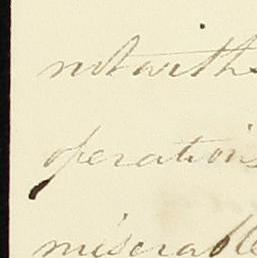 notwith
operation
miserable